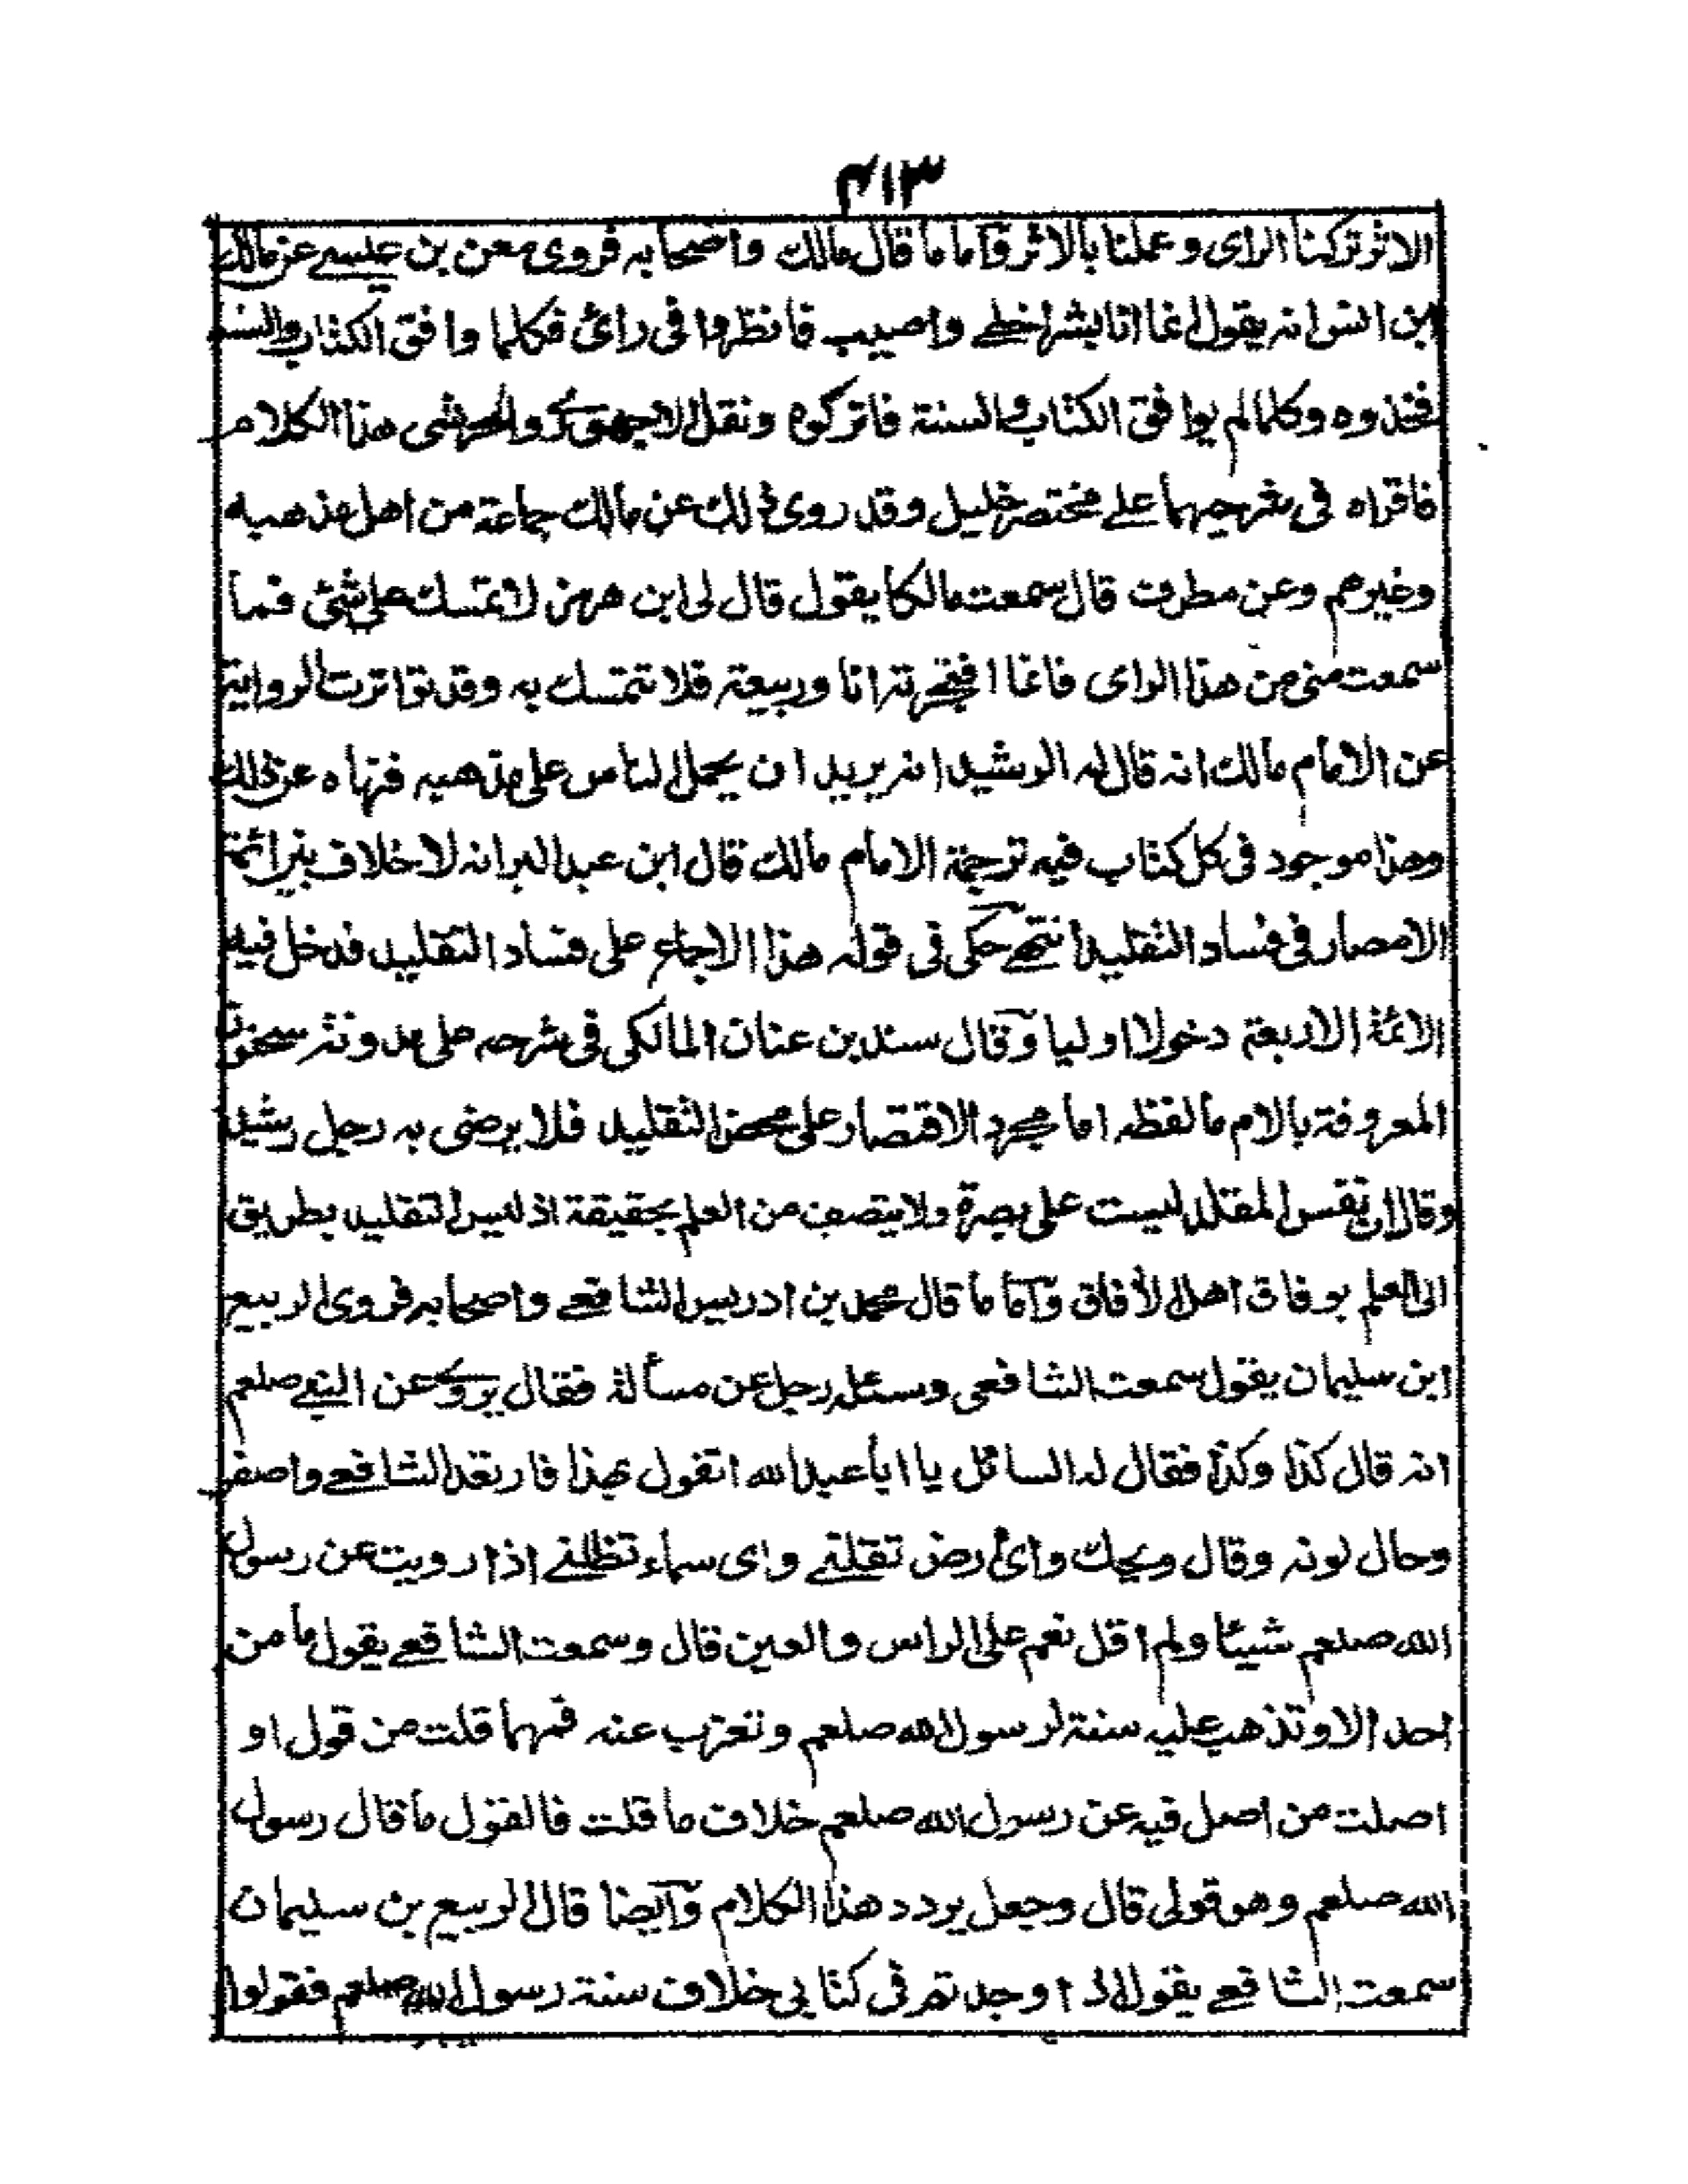 ٤١٣
الاثر تركنا الراى وعملنا بالاثر وآما ما قال مالك واصحابه فروى معن بن عيسے عن مالك
ابن انس انه يقول انما انا بشر اخطے واصيب فانظروا فى رائ فكلما وافق الكتاب والسنة
فخذوه وكلما لم يوافق الكتاب والسنة فاتركوه ونقل الاجهورے والخرشى هذا الكلام
فاقراه فى شرحيهما علے مختصر خليل وقد روى ذلك عن مالك جماعة من اهل مذهبه
وغيرهم وعن مطرف قال سمعت مالكا يقول قال لى ابن هرمز لا تمسك على شئ فما
سمعت منى من هذا الراى فانما افتجرته انا وربيعة فلا تتمسك به وقد تواترت الرواية
عن الامام مالك انه قال له الرشيد انه يريد ان يحمل الناس على مذهبه فنهاه عن ذلك
وهذا موجود فى كل كتاب فيه ترجمة الامام مالك قال ابن عبد البر انه لا خلاف بين ائمة
الامصار فى فساد التقليد انتهے حكى فى قوله هذا الاجماع على فساد التقليد فدخل فيه
الائمة الاربعة دخولا اوليا وقال سند بن عنان المالكى فى شرحه على مدونة سحنون
المعروفة بالام ما لفظه اما مجرد الاقتصار على محض التقليد فلا يرضى به رجل رشيد
وقال ان نفس المقلد ليست على بصيرة ولا يتصف من العلم بحقيقة اذ ليس التقليد بطريق
الى العلم بوفاق اهل الأفاق وآما ما قال محمد بن ادريس الشافعے واصحابه فروى الربيع
ابن سليمان يقول سمعت الشافعى وسئله رجل عن مسألة فقال يروے عن النبے صلعم
انه قال كذا وكذا فقال له السائل يا ابا عبد الله اتقول بهذا فارتعد الشافعے واصفر
وحال لونه وقال ويحك واى ارض تقلنے واى سماء تظلنے اذا رويت عن رسول
الله صلعم شيئا ولم اقل نعم على الراس والعين قال وسمعت الشافعے يقول ما من
احد الا وتذهب عليه سنة لرسول الله صلعم وتعزب عنه فمهما قلت من قول او
اصلت من اصل فيه عن رسول الله صلعم خلاف ما قلت فالقول ما قال رسول
الله صلعم وهو قولى قال وجعل يردد هذا الكلام وآيضا قال الربيع بن سليمان
سمعت الشافعے يقول اذا وجدتم فى كتابى خلاف سنة رسول الله صلعم فقولوا